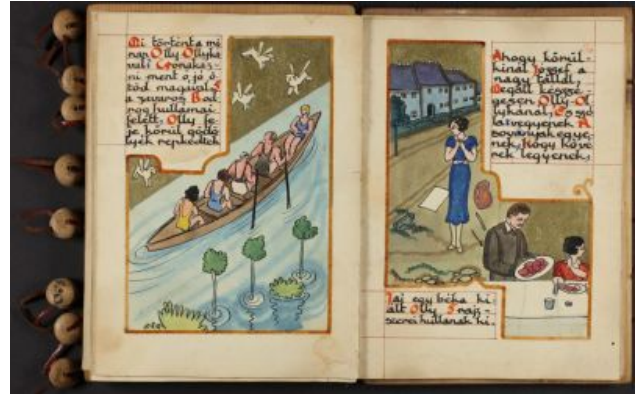 Mi történt a mi
nap Olly Ollyka
val? Csónakáz-
ni ment ő, jó ö-
töd magával. S
a zavaros Bod
rog hullámai
felett, Olly fe-
je körül gödö
lyék repkedtek
Ahogy körül-
kínál József a
nagy tállal,
Megáll készsé-
gesen Olly Ol-
lykánál, És szól
látvegyenek A
soványak egye-
nek, hogy köve
rek legyenek,
Jaj egy béka ki
ált Olly S rajz-
szerei hullanak ki.